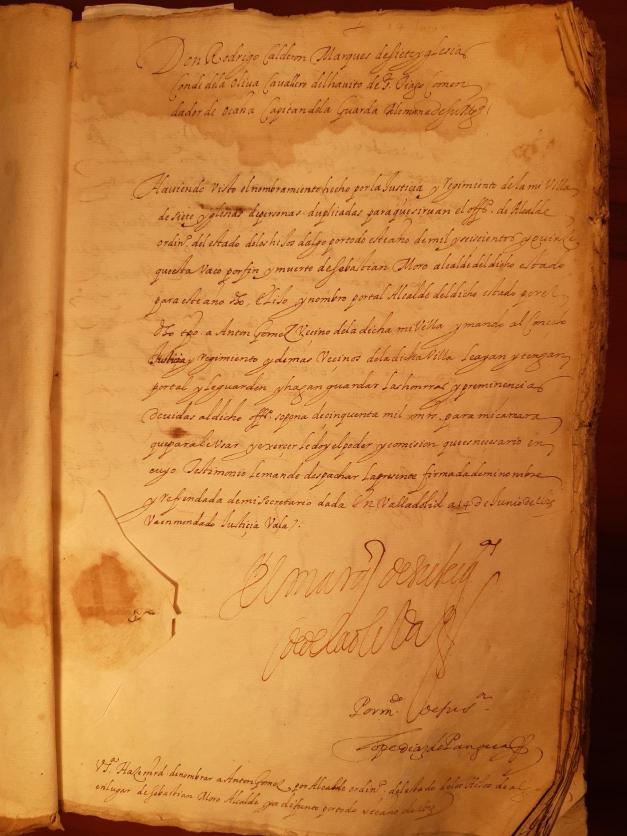 Don Rodrigo Calderon Marques de siete yglesias
Conde dela oliva Cavallero del havito de S. Tiago Comen
dador de ocaña Capitan dela Guarda Alemana de su Mgd
Haviendo Visto el nombramiento hecho por la Justicia y regimiento de la mi Villa
de siete yglesias de personas dupliadas para que siruan el offo. de Alcalde
ordino. del estado de los hijos dalgo por todo este año de mil y seiscientos y quinze
questa Vaco por fin y muerte de Sebastian Moro alcalde del dicho estado
para este ano Elijo y nombro por tal Alcalde del dicho estado por el
dho tpo. a Anton Gomez Vecino dela dicha mi Villa y mando al Concejo
Justicia y regimiento y demas Vecinos dela dicha Villa le ayan y tengan
por tal y le guarden y hagan guardar las honrras y preminencias
devidas al dicho offo. so pena de cinquenta mil mrs. para mi camara
que para le Vsar y exercer le doy el poder y comision que es necesario en
cuyo Testimonio le mande despachar la presente firmada de mi nombre
y refrendada de mi Secretario dada En Valladolid a 14 de Junio de 1615
Va enmendado Justicia Vala
El marqs de siete igas
Conde de la oliva
Por mdo. de su sa.
Lope diaz de Pangua
Va. Haze mrd de nombrar a Anton Gomez por Alcalde ordino. del estado de los Hijos de algo
en lugar de Sebastian Moro Alcalde ya difunto por todo este año de 615